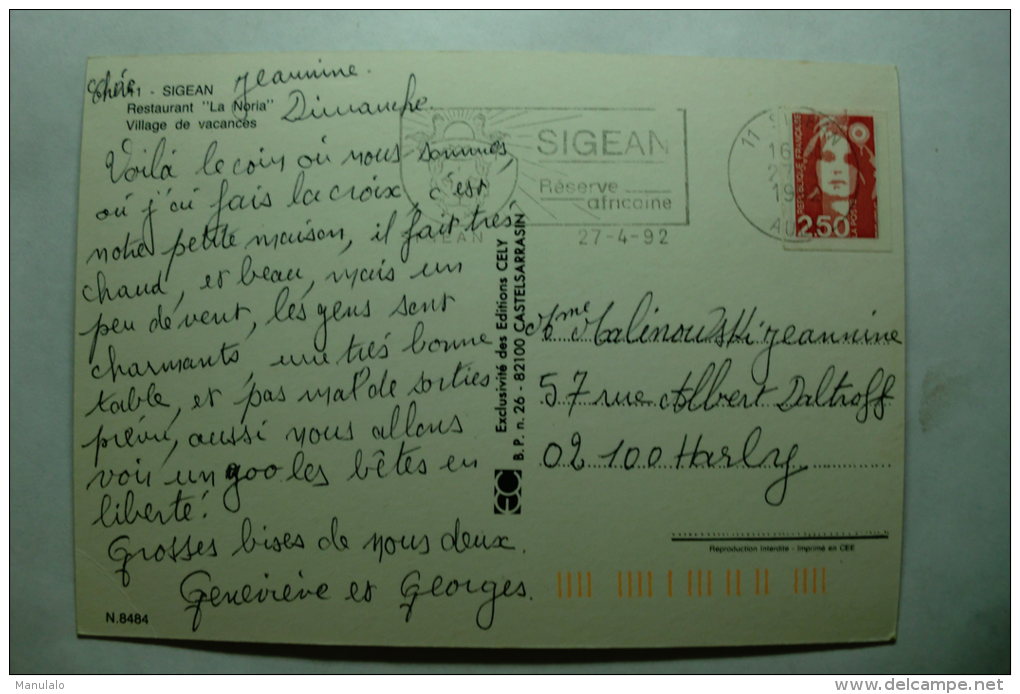 11 - SIGEAN
Restaurant "La Noria"
Village de vacances
Chérie Jeannine.
Dimanche.
Voilà le coin où nous sommes,
où j'ai fais la croix, c'est
notre petite maison, il fait très
chaud, et beau, mais un
peu de vent, les gens sont
charmants, une très bonne
table, et pas mal de sorties
prévu, aussi nous allons
voir un goo les bêtes en
liberté!
Grosses bises de nous deux.
Geneviève et Georges.
N.8484
SIGEAN
Réserve
africaine
27-4-92
REPUBLIQUE FRANÇAISE
2,50
LA POSTE
Exclusivité des Editions CELY
B.P. n. 26 - 82100 CASTELSARRASIN
Mme Malinowski Jeannine
57 rue Albert Daltroff
02100 Harly
Reproduction Interdite - Imprimé en CEE
Manulalo
delcampe.net